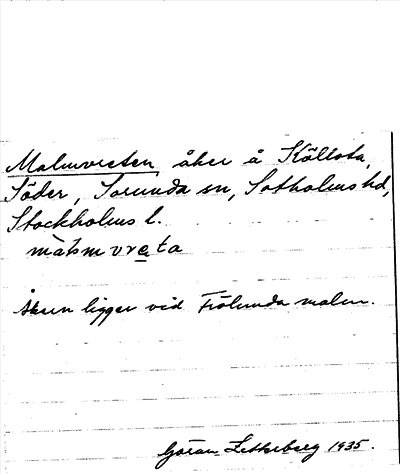 Malmvreten, åker å Källsta,
Söder, Sorunda sn, Sotholms hd,
Stockholms l.
màlmvreta
Åkern ligger vid Frölunda malm.
Göran Zetterberg 1935.